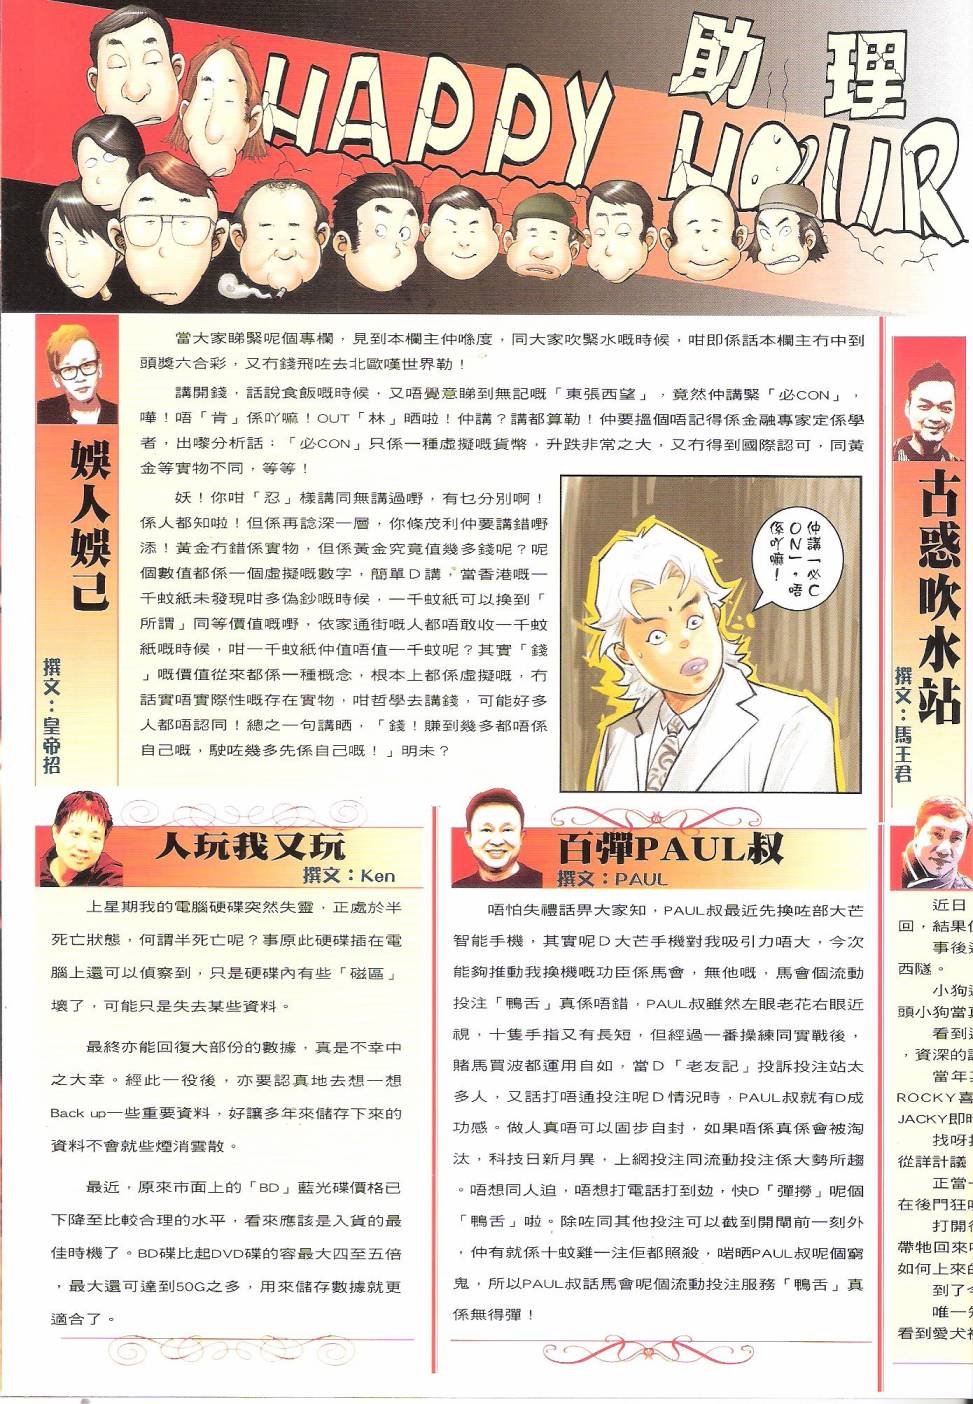 HAPPY 助理
HOUR
娛人娛己
撰文：皇帝招
當大家睇緊呢個專欄，見到本欄主仲喺度，同大家吹緊水嘅時候，咁即係話本欄主冇中到
頭獎六合彩，又冇錢飛咗去北歐嘆世界勒！
講開錢，話說食飯嘅時候，又唔覺意睇到無記嘅「東張西望」，竟然仲講緊「必CON」，
嘩！唔「肯」係吖嘛！OUT「林」晒啦！仲講？講都算勒！仲要搵個唔記得係金融專家定係學
者，出嚟分析話：「必CON」只係一種虛擬嘅貨幣，升跌非常之大，又冇得到國際認可，同黃
金等實物不同，等等！
妖！你咁「忍」樣講同無講過嘢，有乜分別啊！
係人都知啦！但係再諗深一層，你條茂利仲要講錯嘢
添！黃金冇錯係實物，但係黃金究竟值幾多錢呢？呢
個數值都係一個虛擬嘅數字，簡單D講，當香港嘅一
千蚊紙未發現咁多偽鈔嘅時候，一千蚊紙可以換到「
所謂」同等價值嘅嘢，依家通街嘅人都唔敢收一千蚊
紙嘅時候，咁一千蚊紙仲值唔值一千蚊呢？其實「錢
」嘅價值從來都係一種概念，根本上都係虛擬嘅，冇
話實唔實際性嘅存在實物，咁哲學去講錢，可能好多
人都唔認同！總之一句講晒，「錢！賺到幾多都唔係
自己嘅，駛咗幾多先係自己嘅！」明未？
仲講「必C
ON」。唔
係吖嘛！
古惑吹水站
撰文：馬王君
人玩我又玩
撰文：Ken
上星期我的電腦硬碟突然失靈，正處於半
死亡狀態，何謂半死亡呢？事原此硬碟插在電
腦上還可以偵察到，只是硬碟內有些「磁區」
壞了，可能只是失去某些資料。
最終亦能回復大部份的數據，真是不幸中
之大幸。經此一役後，亦要認真地去想一想
Back up一些重要資料，好讓多年來儲存下來的
資料不會就些煙消雲散。
最近，原來市面上的「BD」藍光碟價格已
下降至比較合理的水平，看來應該是入貨的最
佳時機了。BD碟比起DVD碟的容最大四至五倍
，最大還可達到50G之多，用來儲存數據就更
適合了。
百彈PAUL叔
撰文：PAUL
唔怕失禮話畀大家知，PAUL叔最近先換咗部大芒
智能手機，其實呢D大芒手機對我吸引力唔大，今次
能夠推動我換機嘅功臣係馬會，無他嘅，馬會個流動
投注「鴨舌」真係唔錯，PAUL叔雖然左眼老花右眼近
視，十隻手指又有長短，但經過一番操練同實戰後，
賭馬買波都運用自如，當D「老友記」投訴投注站太
多人，又話打唔通投注呢D情況時，PAUL叔就有D成
功感。做人真唔可以固步自封，如果唔係真係會被淘
汰，科技日新月異，上網投注同流動投注係大勢所趨
。唔想同人迫，唔想打電話打到攰，快D「彈撈」呢個
「鴨舌」啦。除咗同其他投注可以截到開閘前一刻外
，仲有就係十蚊雞一注佢都照殺，啱晒PAUL叔呢個窮
鬼，所以PAUL叔話馬會呢個流動投注服務「鴨舌」真
係無得彈！
近日
回，結果
事後
西隧。
小狗
頭小狗當
看到
，資深的
當年
ROCKY喜
JACKY即時
找呀
從詳計議
正當
在後門狂
打開
帶牠回來
如何上來的
到了
唯一
看到愛犬